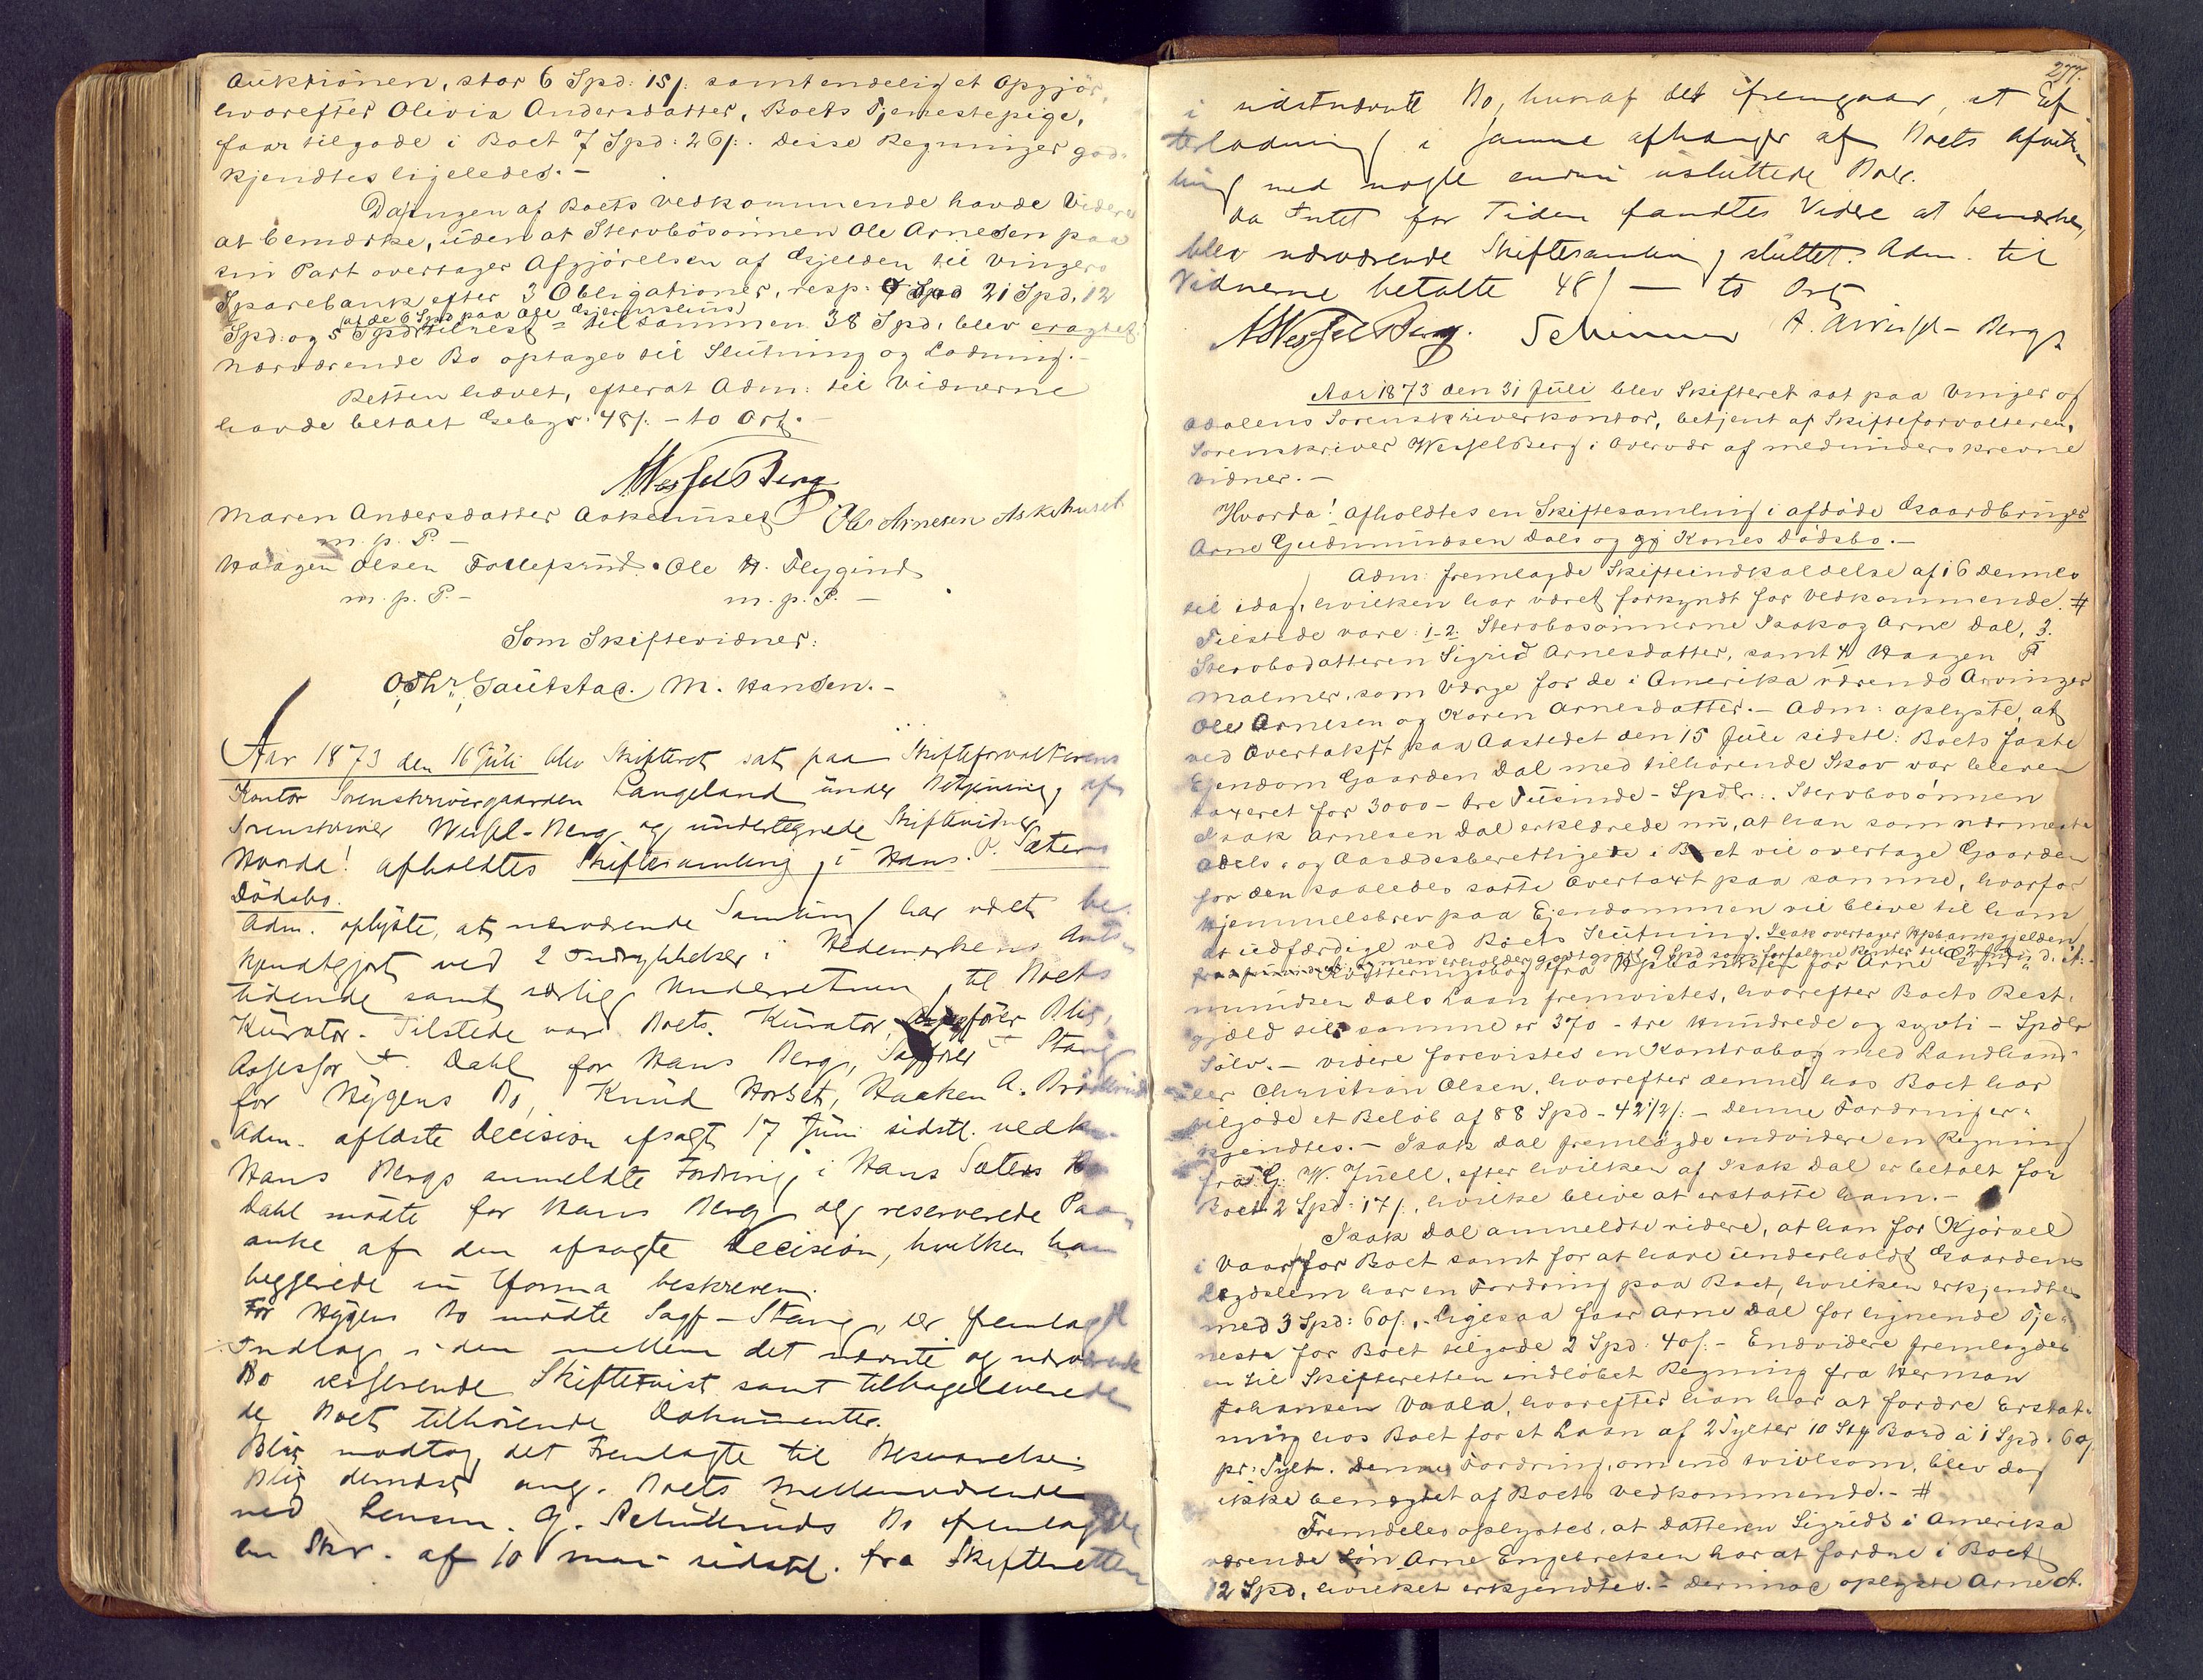 Auktionen, stor 6 Spd: 15/: samt endelig et Opgjör,
hvorefter Olivia Andersdatter, Boets Tjenestepige,
faar tilgode i Boet 7 Spd: 26/:. Disse Regninger god-
kjendtes ligeledes. -
Da Ingen af Boets Vedkommende havde Videre
at bemærke, uden at Stervbosönnen Ole Arnesen paa
sin Part overtager Afgjörelsen af Gjelden til Vinger
Sparebank efter 3 Obligationer, resp: 21 Spd, 12
(af de 6 Spd paa Ole
Spd: og 5 Spd tilrest = tilsammen 38 Spd, blev eragtet
Nærværende Bo optages til Slutning og Lodning. -
Retten hævet, efterat Adm: til Vidnerne
havde betalt Gebyr: 48/: - to Ort.
Wessel Berg
Maren Andersdatter Askehuset Ole Arnesen Askehuset
m. p. P. -
Haagen Olsen Ole H. Flygind
m. p. P. - m. p. P. -
Som Skiftevidner:
M. Hansen. -
Aar 1873 den 16 Juli blev Skifteret sat paa Skifteforvalterens
Kontor Sorenskrivergaarden Langeland under Betjening af
Sorenskriver Wessel-Berg og undertegnede Skiftevidner
Hvorda! afholdtes Skiftesamling i Hans P. Sæters
Dödsbo.
Adm. oplyste, at nærværende Samling har været be-
kjendtgjort ved 2 Indrykkelser i Hedemarkens Amts-
tidende samt særlig Underretning til Boets
Kurator. Tilstede var Boets Kurator,
Assessor Dahl for Hans Berg, Sagförer Stang
for Nygens Bo, Knud Horset, Haaken A.
Adm. aflæste Decision afsagt 17 Juni sidstl. vedk.
Hans Bergs anmeldte Fordring i Hans Sæters Bo
Dahl mödte for Hans Berg og reserverede Paa-
anke af den afsagte Decision, hvilken han
begjerede in forma beskreven.
For Nygens Bo mödte Sagf - Stang, der fremlagde
Indlæg i den mellem det nævnte og nærværende
Bo verserende Skiftetvist samt tilbageleverede
de Boet tilhörende Dokumenter.
modtog det Fremlagte til Besvarelse.
dernæst ang. Boets Mellemværende
ved Lensm. G. Schütteruds Bo fremlagde
en Skr. af 10 mai sidstl. fra Skifteretten
277.
i sidstnævnte Bo, hvoraf det fremgaar, at Ef-
terlodning i samme afhænger af Boets Afvik-
ling med nogle endnu usluttede Boer.
Da Intet for Tiden fandtes Videre at bemærke,
blev nærværende Skiftesamling sluttet. Adm. til
Vidnerne betalte 48/ - to Ort
Wessel Berg. Schinner
Aar 1873 den 31 Juli blev Skifteret sat paa Vinger og
Odalens Sorenskriverkontor, betjent af Skifteforvalteren,
Sorenskriver WesselBerg i Overvær af medunderskrevne
Vidner. -
Hvorda! Afholdtes en Skiftesamling i afdöde Gaardbruger
Arne Gudmundsen Dals og gj Kones Dödsbo. -
Adm: fremlagde Skifteindkaldelse af 16 Dennes
til idag, hvilken har været forkyndt for Vedkommende. #
Tilstede vare: 1-2. Stervbosönnerne Isak og Arne Dal, 3.
Stervbodatteren Sigrid Arnesdatter, samt 4 Haagen P
Malmer, som Værge for de i Amerika værende Arvinger
Ole Arnesen og Karen Arnesdatter. - Adm: oplyste, at
ved Overtakst paa Aastedet den 15 Juli sidstl: Boets faste
Ejendom Gaarden Dal med tilhörende Skov var bleven
taxeret for 3000 - tre Tusinde - Spdlr:. Stervbosönnen
Isak Arnesen Dal erklærede nu, at han som nærmeste
Odels- og Aasædesberettigede i Boet vil overtage Gaarden
for den saaledes satte Overtaxt paa samme, hvorfor
Hjemmelsbrev paa Ejendommen vil blive til ham
at udfærdige ved Boets Slutning. Isak overtager Hpbankgjelden,
men erholder godtgjort 9 Spd som forfaldne Renter til
Kvitteringsbog fra Hpbanken for Arne Gud-
mundsen Dals Laan fremvistes, hvorefter Boets Rest-
gjæld til samme er 370 - tre Hundrede og syvti - Spdlr
Sölv. - Videre forevistes en Kontrabog med Landhand-
ler Christian Olsen, hvorefter denne hos Boet har
tilgode et Belöb af 88 Spd - 42 1/2/: - Denne Fordring er-
kjendtes. - Isak Dal fremlagde endvidere en Regning
fra G. W. Juell, efter hvilken af Isak Dal er betalt for
Boet 2 Spd: 17/:, hvilke blive at erstatte ham. -
Isak Dal anmeldte videre, at han for Kjörsel
i Vaar for Boet samt for at have underholdt Gaardens
Lægdslem har en Fordring paa Boet, hvilken erkjendtes
med 3 Spd: 60/:. - Ligesaa faar Arne Dal for lignende Tje-
neste for Boet tilgode 2 Spd: 40/: - Endvidere fremlagdes
en til Skifteretten indlöbet Regning fra Herman
Johansen Vaala, hvorefter han har at fordre Erstat-
ning hos Boet for et Laan af 2 Tylter 10 Stk Bord à 1 Spd: 60/
pr: Tylt. Denne Fordring, omend tvivlsom, blev dog
ikke benægtet af Boets Vedkommende. - #
Fremdeles oplystes, at Datteren Sigrids i Amerika
værende Sön Arne Engebretsen har at fordre i Boet
12 Spd, hvilket erkjendtes. - Dernæst oplyste Arne A.